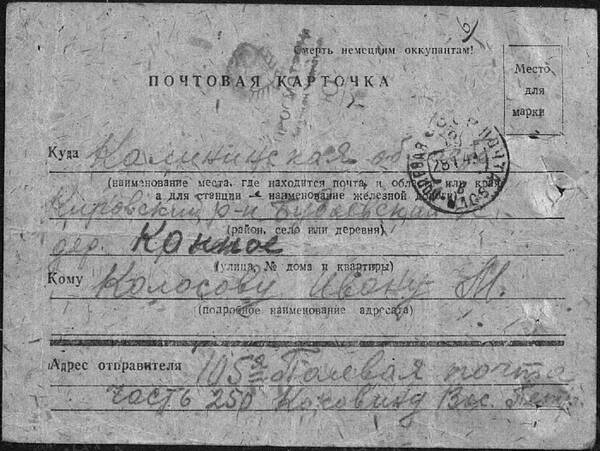 Смерть немецким оккупантам!
ПОЧТОВАЯ КАРТОЧКА
Место
для
марки
Куда Калининская об
(наименование места, где находится почта, и области или края
а для станции — наименование железной дороги)
Кировский р-н
(район, село или деревня)
дер. Конное
(улица, № дома и квартиры)
Кому Колосову Ивану М.
(подробное наименование адресата)
Адрес отправителя 105 Полевая почта
часть 250 Коровину Вас.